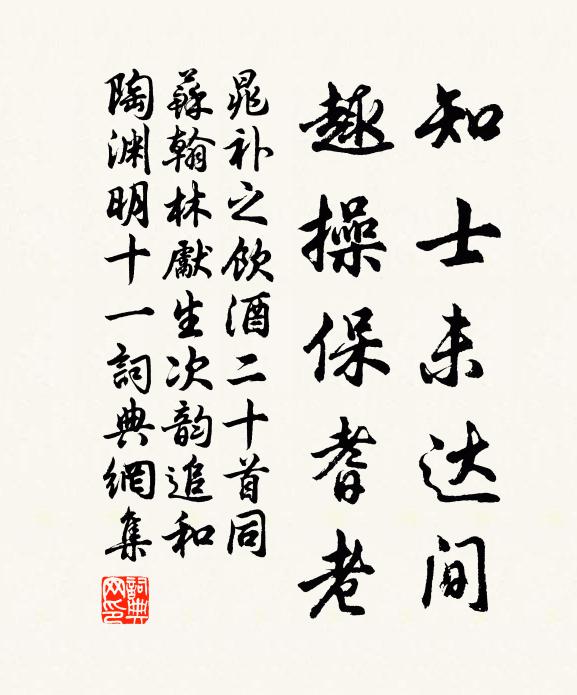 知士未达间
趣操保耆老
晁补之饮酒二十首同
苏翰林献生次韵追和
陶渊明十一词典网集
词典网印